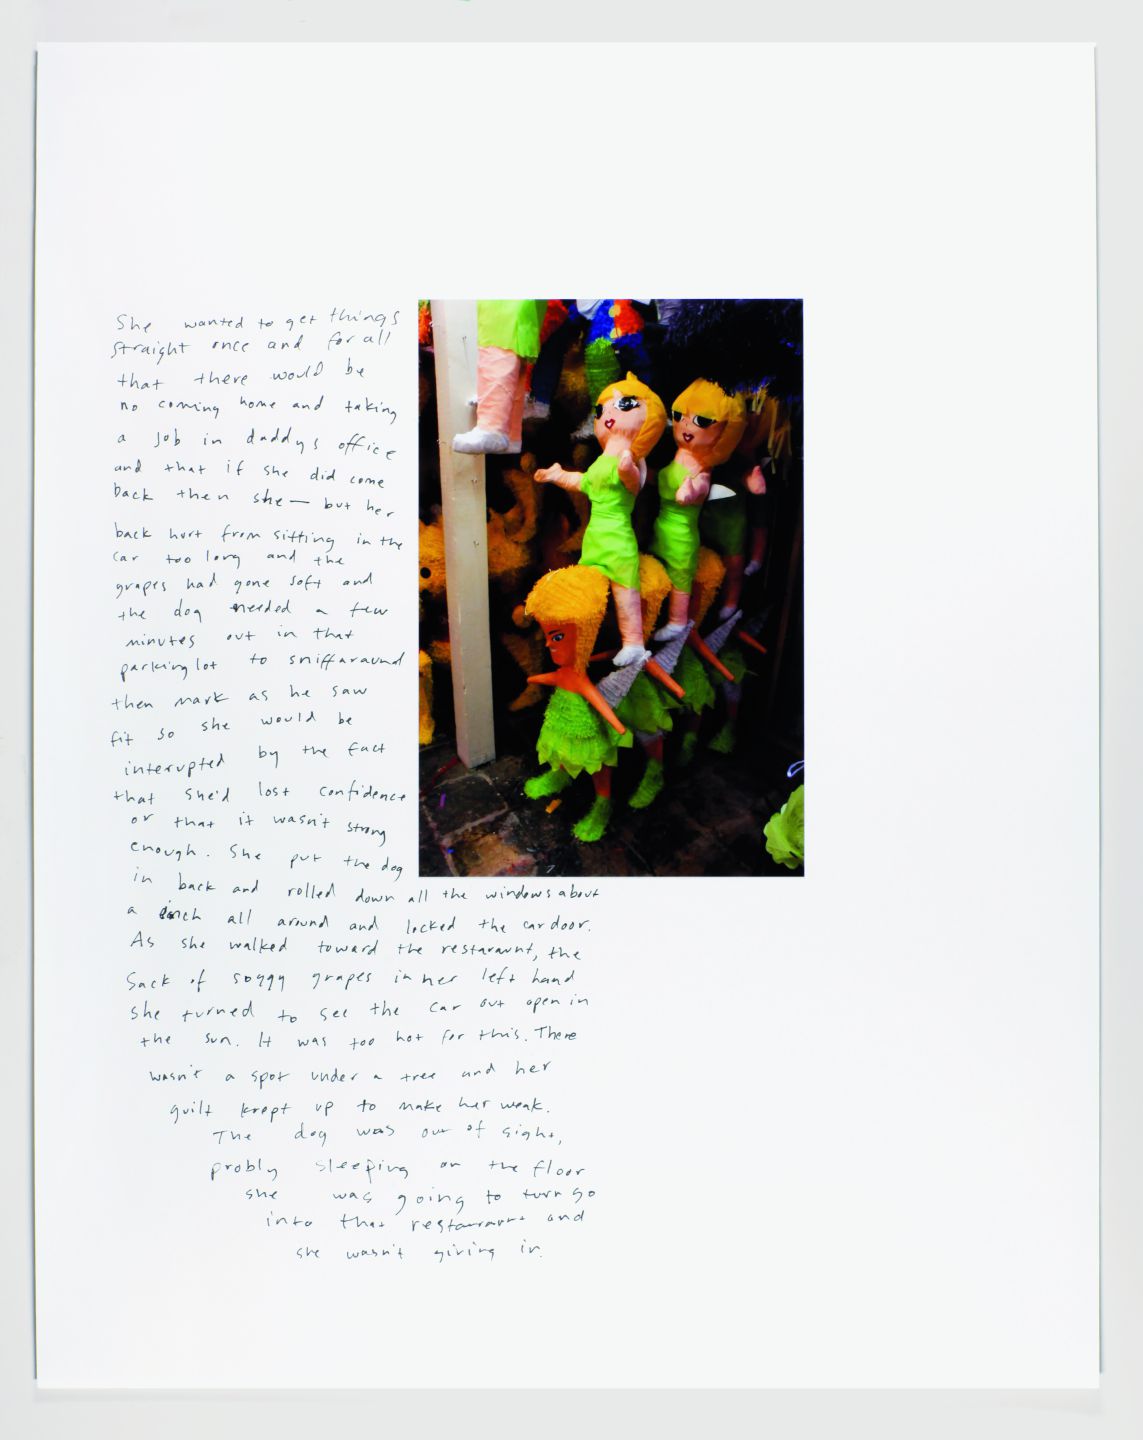 She wanted to get things
straight once and for all
that there would be
no coming home and taking
a job in daddys office
and that if she did come
back then she — but her
back hurt from sitting in the
car too long and the
grapes had gone soft and
the dog needed a few
minutes out in that
parking lot to sniff around
then mark as he saw
fit so she would be
interupted by the fact
that she'd lost confidence
or that it wasn't strong
enough. She put the dog
in back and rolled down all the windows about
a inch all around and locked the car door.
As she walked toward the restaraunt, the
sack of soggy grapes in her left hand
she turned to see the car out open in
the sun. It was too hot for this. There
wasn't a spot under a tree and her
guilt kept up to make her weak.
The dog was out of sight,
probly sleeping on the floor
she was going to turn go
into that restaraunt and
she wasn't giving in.